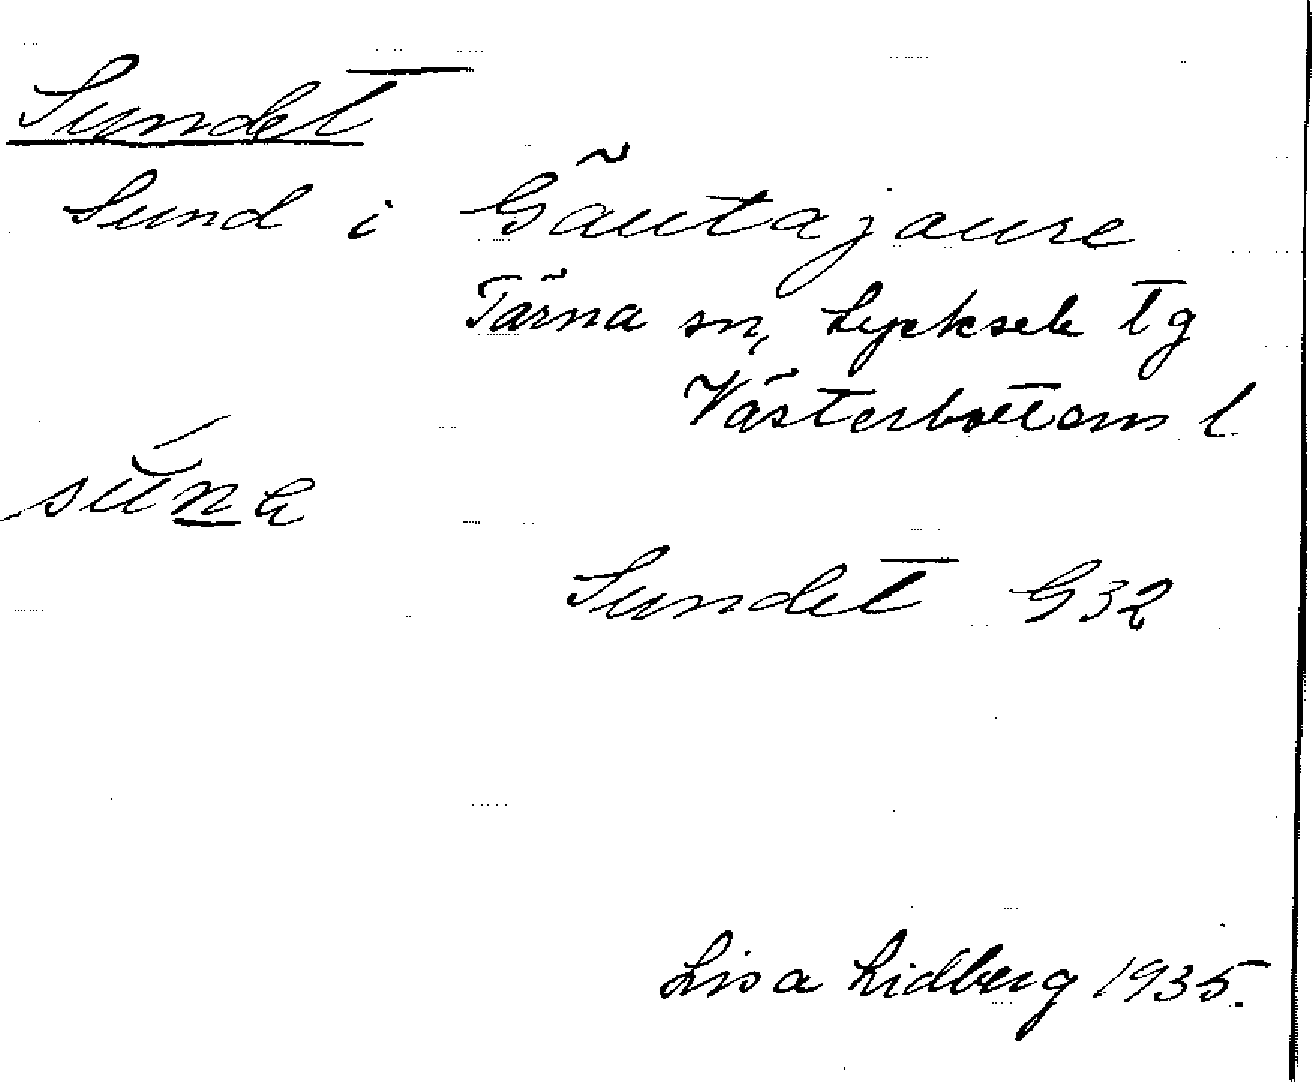 Sundet
Sund i Gäutajaure
Tärna sn, Lycksele tg
Västerbottens l
Sundet G32
Lisa Lidberg 1935.